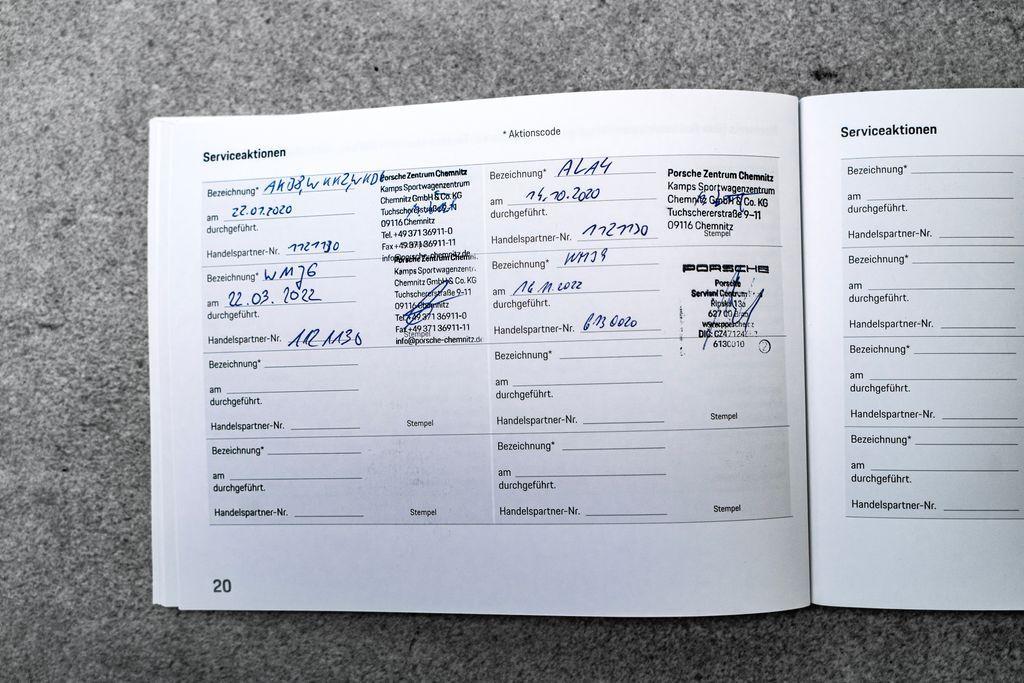 * Aktionscode
Serviceaktionen
Bezeichnung*
am 22.07.2020
durchgeführt.
Handelspartner-Nr. 1121130
Porsche Zentrum Chemnitz
Kamps Sportwagenzentrum
Chemnitz GmbH & Co. KG
09116 Chemnitz
Tel. +49 371 36911-0
Fax +49 371 36911-11
Bezeichnung* ALA4
am 14.10.2020
durchgeführt.
Handelspartner-Nr. 1121130
Porsche Zentrum Chemnitz
Kamps Sportwagenzentrum
Chemnitz GmbH & Co. KG
Tuchschererstraße 9-11
09116 Chemnitz
Stempel
Bezeichnung* WMJ6
am 22.03.2022
durchgeführt.
Handelspartner-Nr. 1121130
Porsche Zentrum Chemnitz
Kamps Sportwagenzentr.
Chemnitz GmbH & Co. KG
Tuchschererstraße 9-11
09116 Chemnitz
Tel. +49 371 36911-0
Fax +49 371 36911-11
info@porsche-chemnitz.de
Bezeichnung*
am 16.11.2022
durchgeführt.
Handelspartner-Nr. 6130020
PORSCHE
Porsche
6130010
2
Bezeichnung*
am
durchgeführt.
Handelspartner-Nr.
Stempel
Bezeichnung*
am
durchgeführt.
Handelspartner-Nr.
Stempel
Bezeichnung*
am
durchgeführt.
Handelspartner-Nr.
Stempel
Bezeichnung*
am
durchgeführt.
Handelspartner-Nr.
Stempel
20
Serviceaktionen
Bezeichnung*
am
durchgeführt.
Handelspartner-Nr.
Bezeichnung*
am
durchgeführt.
Handelspartner-Nr.
Bezeichnung*
am
durchgeführt.
Handelspartner-Nr.
Bezeichnung*
am
durchgeführt.
Handelspartner-Nr.